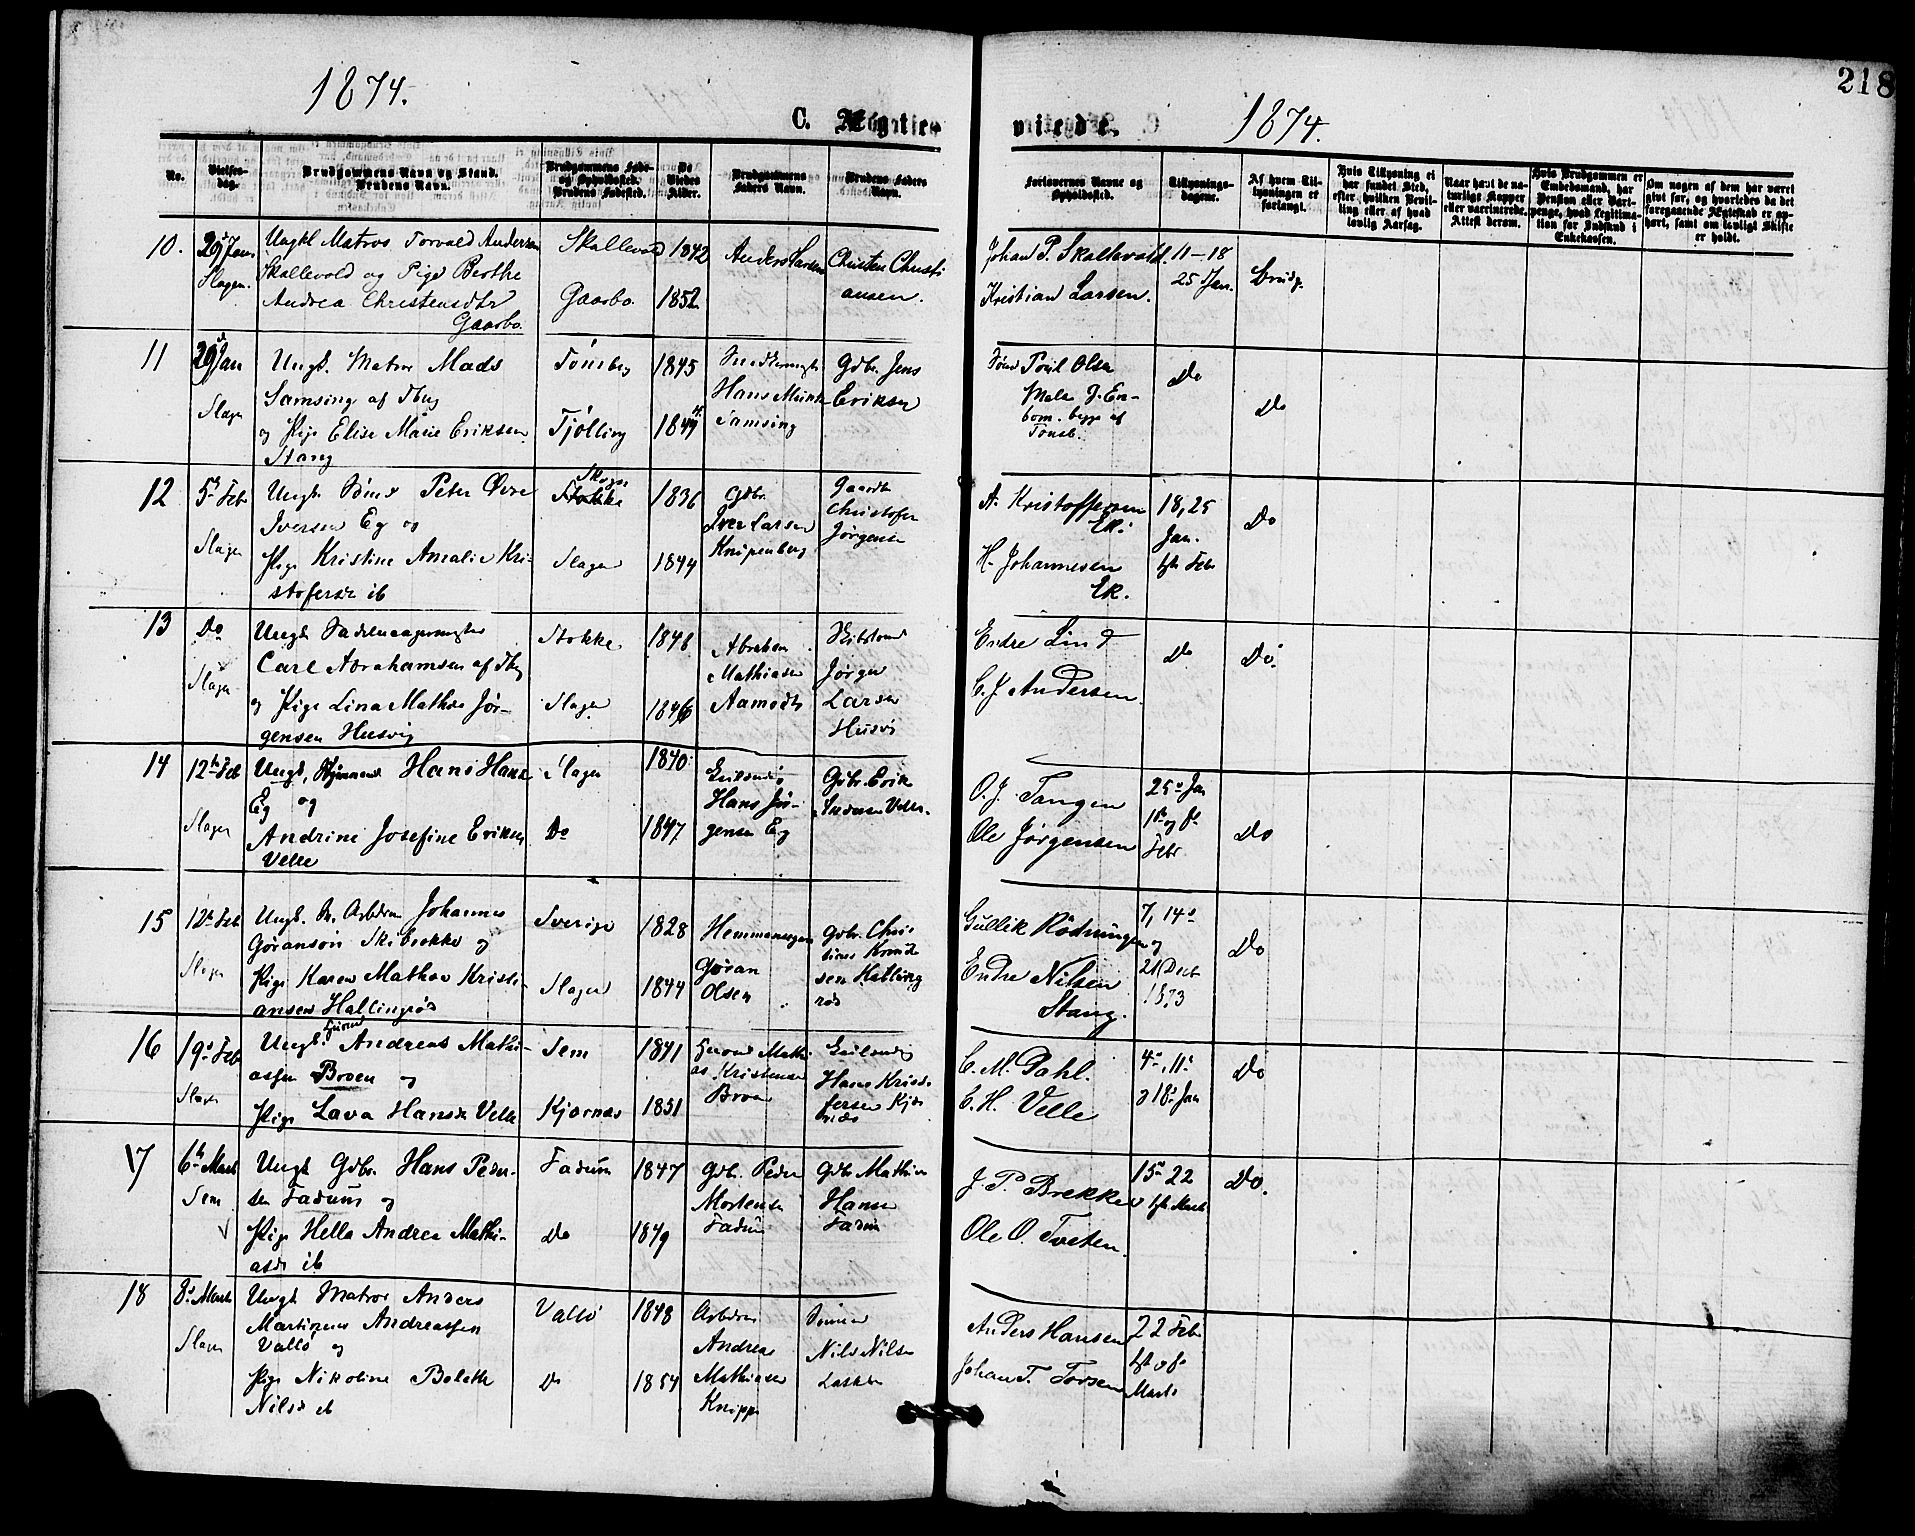 218
1874.
1874.
C. Ægtevi
viede.
No.
Vielses-
dag.
Brudgommens Navn og Stand.
Brudens Navn.
Brudgommens Føde-
og Opholdssted.
Brudens Fødested.
De
Viedes
Alder.
Brudgommens
Faders Navn.
Brudens Faders
Navn.
Forlovernes Navne og
Opholdssted.
Tillysnings-
dagene.
Af hvem Til-
lysningen er
forlangt.
Hvis Tillysning ei
har fundet Sted,
efter hvilken Bevil-
ling eller af hvad
lovlig Aarsag.
Naar havt de na-
turlige Kopper
eller vaccinerede.
Attest derom.
Hvis Brudgommen er
Embedsmand, har
Pension eller Vart-
penge, hvad Legitima-
tion for Indskud i
Enkekassen.
Om nogen af dem har været
givt før, og hvorledes da det
foregaaende Ægteskab er op-
hørt, samt om lovligt Skifte
er holdt.
10.
29 Jan
Slagen.
Ungkl Matros Torvald Andersen
Skallevold og Pige Berthe
Andrea Christensdtr
Gaarbo.
Skallevold
Gaarbo.
1842
1852
Anders Larsen
Christen Christi
ansen.
Johan P. Skallevold.
Kristian Larsen.
11-18
25 Jan.
Brudg.
11
29 Jan
Slagen
Ungk. Matros Mads
Samsing af Tbg
og Pige Elise Marie Eriksen
Stang
Tønsberg
Tjølling
1845
1849
Hans Munk
Samsing
Gdbr. Jens
Eriksen
Poul Olsen
begge af
Tønsb.
Do
Do
12
5 Feb
Slagen
Ungk. Peter Øvre
Iversen Eg og
Pige Kristine Amalie Kri-
stofersdr ib
Stokke
Slagen
1836
1844
Gdbr.
Iver Larsen
Knipenberg
Gaardb
Christofer
Jørgensen
A. Kristoffersen
Ek.
H. Johannesen
Ek.
18, 25
Jan.
1ste Feb
Do
13
Do
Slagen
Ungk. Sadelmagersvend
Carl Abrahamsen af Tbg
og Pige Lina Mathea Jør-
gensen Husvig
Stokke
Slagen
1848
1846
Abraham
Mathiesen
Aamodt
Jørgen
Larsen
Husvi
Endre Lind
C. J. Andersen
Do
Do
14
12 Feb
Slagen
Ungk. Hans Hansen
Eg og
Andrine Josefine Eriksen
Velle
Slagen
Do
1840
1847
Hans Jør-
gensen Eg
Gdbr. Erik
Andersen Velle.
O. J. Tangen
Ole Jørgensen
25 Jan
1 og 8
Febr
Do
15
12 Feb
Slagen
Ungk. Arbdm Johannes
Gøranson Skibrekke og
Pige Karen Mathea Kristi-
ansen Hallingrød
Sverige
Slagen
1828
1844
Gøran
Olsen
Gdbr. Chris
tian Knud
sen Halling
rød
Gullik Rødningen
Endre Nilsen
Stang.
7, 14
og
21 Decb
1873
Do
16
19 Feb
Slagen
Ungk. Andreas Mathi-
assen Broen og
Pige Lava Hansdr Velle
Sem
Kjørnæs
1841
1851
Mathi
as Kristensen
Broen
Hans Kristo
fersen
C. M. Dahl.
C. H. Velle
4, 11
o 18 Jan
Do
17
6 Marts
Sem
Ungk Gdbr. Hans Peder-
sen Fadum og
Pige Hella Andrea Mathi-
asdr ib
Fadum
Do
1847
1849
Gdbr. Peder
Mortensen
Fadum
Gdbr Mathias
Hansen
Fadum
J. P. Brekke
Ole O. Tveten.
15 22
o 1ste Marts
Do.
18
8 Marts
Slagen
Ungk Matros Anders
Martinus Andreassen
Vallø og
Pige Nikoline Bolette
Nilsdr ib
Vallø
Do
1848
1854
Arbdm
Andreas
Mathiasen
Knippe
Sømand
Nils Nilsen
Anders Hansen
Johan T. Torsen
22 Feb
1ste o 8
Marts